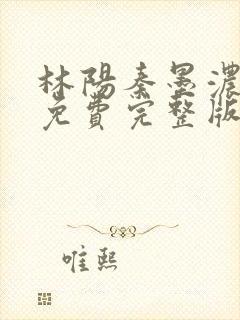 林陽秦墨濃
免費完整版
唯熙